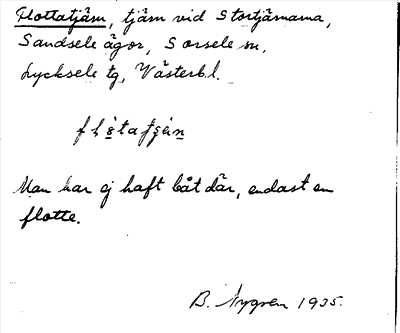 Flottatjärn, tjärn vid Stortjärnarna,
Sandsele ägor, Sorsele sn,
Lycksele tg, Västerb.l.
Man har ej haft båt där, endast en
flotte.
B. Nygren 1935.